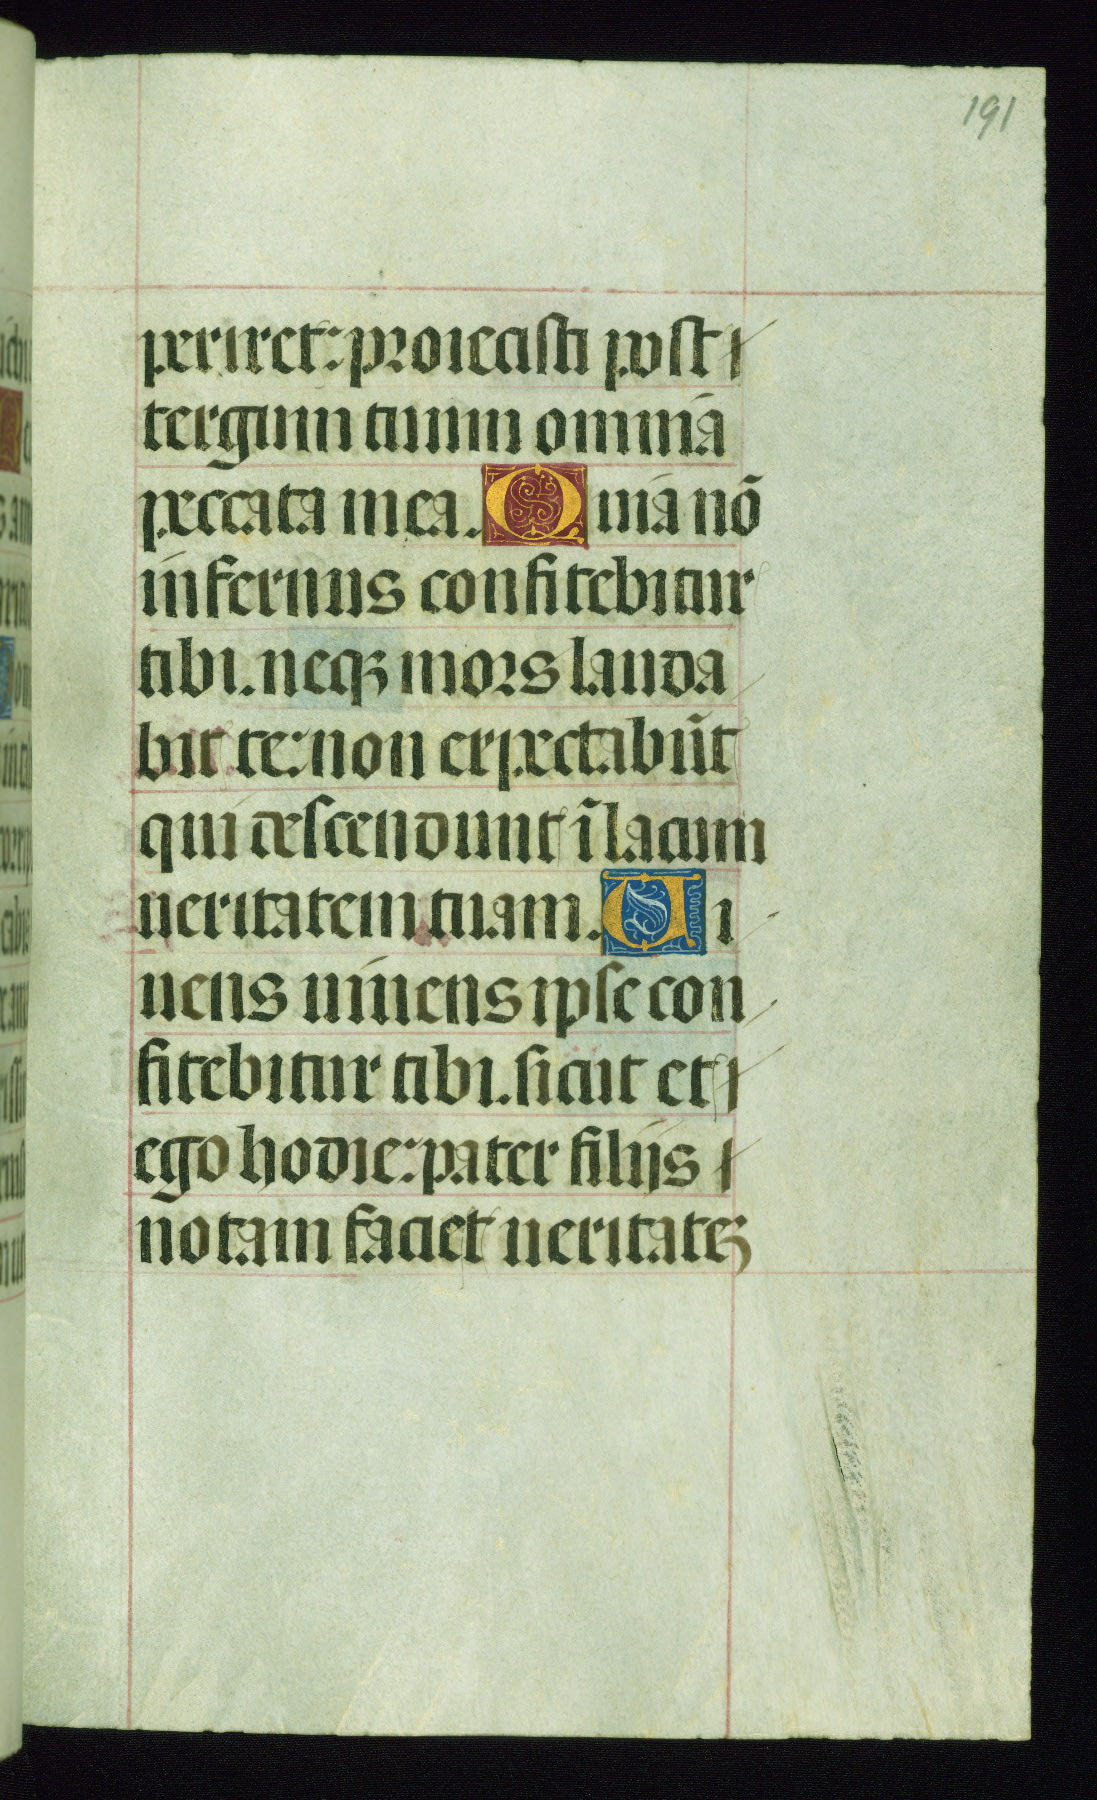 191
periret: proiecisti post
tergum tuum omnia
peccata mea. Quia nō
infernus confitebitur
tibi. neqꝫ mors lauda
bit te: non expectabūt
qui descendunt ī lacum
ueritatem tuam. Ui
uens uiuens ipse con
fitebitur tibi. sicut et
ego hodie: pater filijs
notam faciet ueritateꝫ